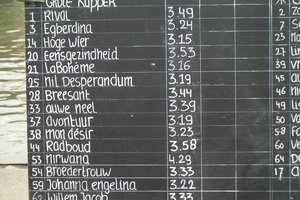 GROTE KOPPER
1 RIVAL 3.49
3 Egberdina 3.24
14 Hoge wier 3.15
20 Eensgezindheid 3.53
21 LaBohème 3.16
25 nil Desperandum 3.19
28 Breesant 3.44
33 auwe neel 3.39
37 avontuur 3.19
38 mon désir 3.23
44 Radboud 3.58
53 nirwana 4.29
54 Broedertrouw 3.33
59 Johanna engelina 3.22
62 Willem Jacob 3.33
2
7
24
27
31
45
46
49
50
58
60
64
17